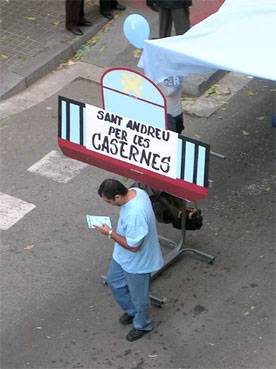 SANT ANDREU
PER LES
CASERNES